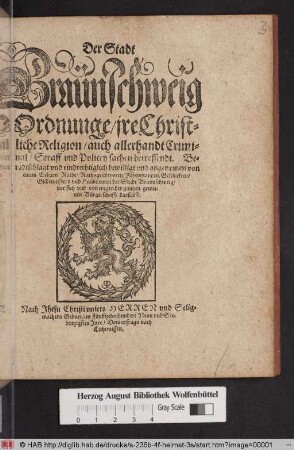 3
Der Stadt
Braunschweig
Ordnunge / jre Christ-
liche Religion / auch allerhandt Crimi-
nal / Straff vnd Policey sachen betreffendt. Be-
radtschlagt vnd eindrechtiglich bewilligt vnd angenommen von
einem Erbarn Rathe / Rathsgeschwornen, Zehenmannen, Geschickten /
Gildemeistern vnd Hauptleuten der Stadt Braunschweig /
vor sich vnd von wegen der gantzen gemei-
nen Bürgerschafft daselbst.
Nach Jhesu Christi vnsers HERREN vnd Selig-
machers Geburt / im Fünfftzehenhundert Neun vnd Sie-
bentzigsten Jare / Donnerstags nach
Liechtmissen.
Herzog August Bibliothek Wolfenbüttel
Gray Scale
© HAB http://diglib.hab.de/drucke/s-235b-4f-helmst-3s/start.htm?image=00001